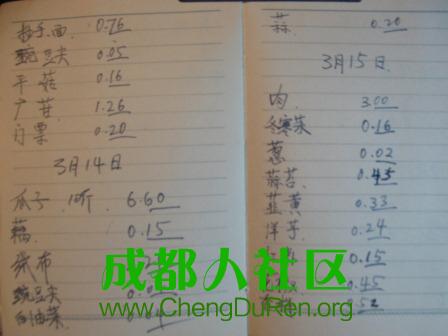 抄手面 0.76
豌豆尖 0.05
平菇 0.16
广柑 1.26
门票 0.20
3月14日
瓜子 1斤 6.60
藕 0.15
豌豆尖
白油菜
蒜 0.20
3月15日
肉 3.00
冬寒菜 0.16
葱 0.02
蒜苔 0.45
韭黄 0.33
洋芋 0.24
0.15
0.45
0.52
成都人社区
www.ChengDuRen.org